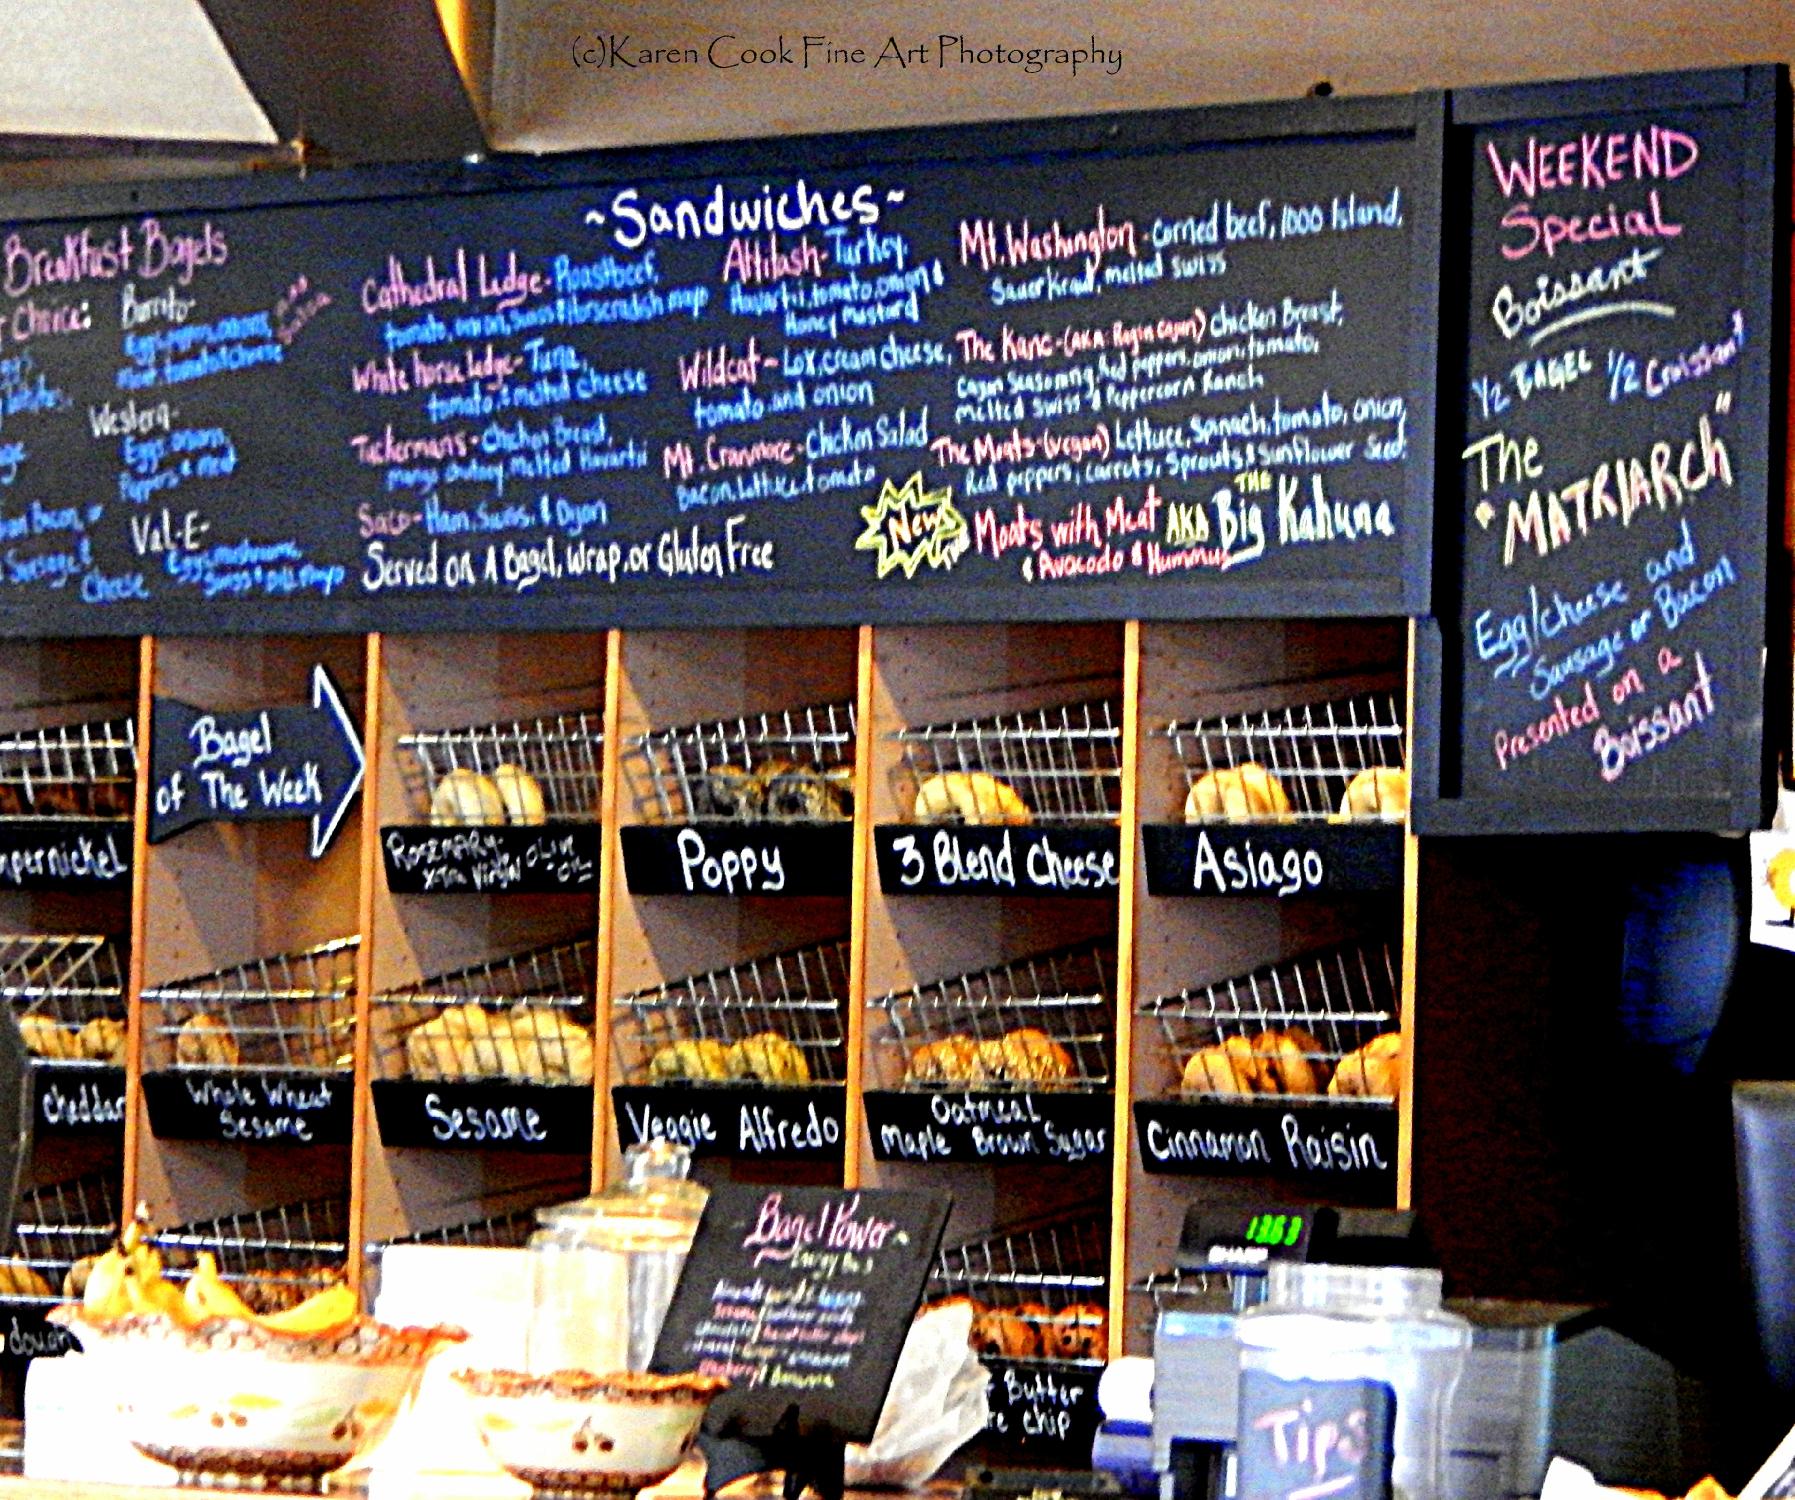 (c)Karen Cook Fine Art Photography
Breakfast Bagels
Choice:
Burrito-
Salsa
Western-
Eggs, onions,
Peppers & meat
Val-E-
Eggs, mushrooms,
Swiss & Dill mayo
Sausage &
Cheese
~Sandwiches~
Cathedral Ledge- Roastbeef,
tomato, onion, Swiss & Horseradish mayo
White horse Ledge- Tuna,
tomato, & melted cheese
Tuckermans- Chicken Breast,
mango chutney, Melted Havarti
Saco- Ham, Swiss, & Dijon
Served on A Bagel, Wrap, or Gluten Free
Attitash- Turkey,
Havarti, tomato, onion &
Honey Mustard
Wildcat- Lox, cream cheese,
tomato and onion
Mt. Cranmore- Chicken Salad
Bacon, Lettuce, tomato
Mt. Washington- Corned beef, 1000 Island,
Sauerkraut, melted Swiss
The Kanc-(AKA: Ragin Cajun) Chicken Breast,
Cajun Seasoning, Red peppers, onion, tomato,
melted Swiss & Peppercorn Ranch
The Moats-(vegan) Lettuce, Spinach, tomato, onion,
Red peppers, carrots, Sprouts & Sunflower Seed
New
Moats with Meat AKA THE Big Kahuna
& Avocado & Hummus
WEEKEND
Special
Boissant
1/2 BAGEL 1/2 Croissant
The
"MATRIARCh"
Egg/cheese and
Sausage or Bacon
Presented on a
Boissant
Bagel
of The Week
mpernickel
Rosemary-
X-tra Virgin Olive Oil
Poppy
3 Blend Cheese
Asiago
cheddar
Whole Wheat
Sesame
Sesame
Veggie Alfredo
Oatmeal
Maple Brown Sugar
Cinnamon Raisin
dough
Bagel Power~
Butter
chip
13.63
SHARP
Tips